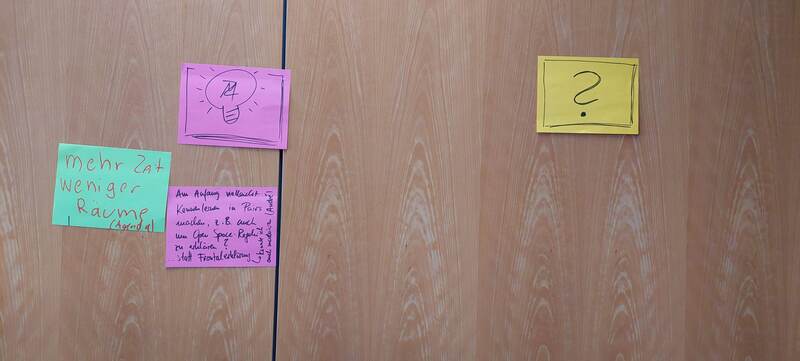 ?
mehr Zeit
weniger
Räume
(Agenda)
Am Anfang vielleicht
Kennenlernen in Pairs
machen, z.B. auch
um Open Space-Regeln
zu erklären?
statt Frontalerklärung
auch (André)